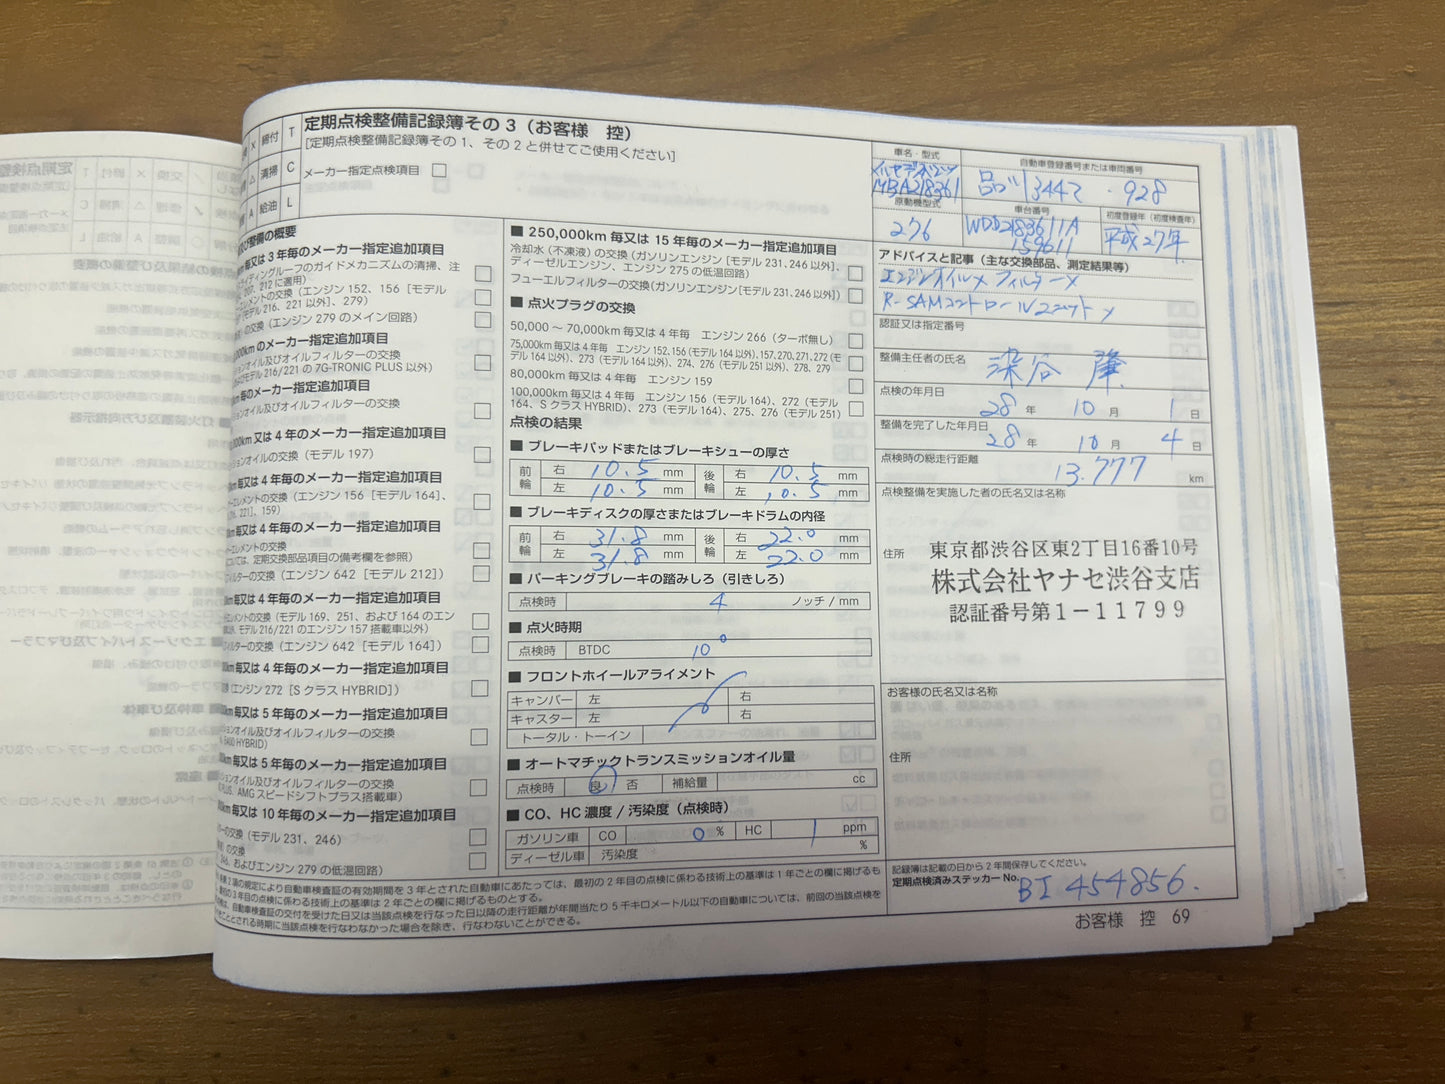 定期点検整備記録簿その 3（お客様　控）
[定期点検整備記録簿その 1、その 2 と併せてご使用ください]
メーカー指定点検項目
X 締付 T
△ 清掃 C
A 給油 L
及び整備の概要
毎又は 3 年毎のメーカー指定追加項目
ディングルーフのガイドメカニズムの清掃、注
207, 212 に適用)
エレメントの交換（エンジン 152、156［モデル
［モデル 216、221 以外］、279）
の交換（エンジン 279 のメイン回路）
kmのメーカー指定追加項目
オイル及びオイルフィルターの交換
モデル 216/221 の 7G-TRONIC PLUS 以外）
毎のメーカー指定追加項目
ションオイル及びオイルフィルターの交換
km又は 4 年毎のメーカー指定追加項目
ションオイルの交換（モデル 197）
km毎又は 4 年毎のメーカー指定追加項目
エレメントの交換（エンジン 156［モデル 164］、
221］、159）
km毎又は 4 年毎のメーカー指定追加項目
ーエレメントの交換
ては、定期交換部品項目の備考欄を参照）
フィルターの交換（エンジン 642［モデル 212］）
km毎又は 4 年毎のメーカー指定追加項目
エレメントの交換（モデル 169、251、および 164 のエン
以外、モデル 216/221 のエンジン 157 搭載車以外）
フィルターの交換（エンジン 642［モデル 164］）
km毎又は 4 年毎のメーカー指定追加項目
（エンジン 272［S クラス HYBRID］）
km毎又は 5 年毎のメーカー指定追加項目
ションオイル及びオイルフィルターの交換
S400 HYBRID）
km毎又は 5 年毎のメーカー指定追加項目
ションオイル及びオイルフィルターの交換
PLUS、AMG スピードシフトプラス搭載車）
km毎又は 10 年毎のメーカー指定追加項目
の交換（モデル 231、246）
の交換
246、およびエンジン 279 の低温回路）
■ 250,000km 毎又は 15 年毎のメーカー指定追加項目
冷却水（不凍液）の交換（ガソリンエンジン［モデル 231、246 以外］、
ディーゼルエンジン、エンジン 275 の低温回路）
フューエルフィルターの交換（ガソリンエンジン［モデル 231、246 以外］）
■ 点火プラグの交換
50,000 ～ 70,000km 毎又は 4 年毎　エンジン 266（ターボ無し）
75,000km 毎又は 4 年毎　エンジン 152、156（モデル 164 以外）、157、270、271、272（モ
デル 164 以外）、273（モデル 164 以外）、274、276（モデル 251 以外）、278、279
80,000km 毎又は 4 年毎　エンジン 159
100,000km 毎又は 4 年毎　エンジン 156（モデル 164）、272（モデル
164、S クラス HYBRID）、273（モデル 164）、275、276（モデル 251）
点検の結果
■ ブレーキパッドまたはブレーキシューの厚さ
前輪 右 10.5 mm 後輪 右 10.5 mm
左 10.5 mm 左 10.5 mm
■ ブレーキディスクの厚さまたはブレーキドラムの内径
前輪 右 31.8 mm 後輪 右 22.0 mm
左 31.8 mm 左 22.0 mm
■ パーキングブレーキの踏みしろ（引きしろ）
点検時 4 ノッチ / mm
■ 点火時期
点検時 BTDC 10°
■ フロントホイールアライメント
キャンバー 左 右
キャスター 左 右
トータル・トーイン
■ オートマチックトランスミッションオイル量
点検時 良 否 補給量 cc
■ CO、HC 濃度 / 汚染度（点検時）
ガソリン車 CO 0 % HC 1 ppm
ディーゼル車 汚染度 %
車名・型式
メルセデスベンツ
MBA218361
自動車登録番号または車両番号
品川 344 928
原動機型式
276
車台番号
WDD2183611A
159611
初度登録年（初度検査年）
平成27年
アドバイスと記事（主な交換部品、測定結果等）
エンジンオイルメ フィルターメ
R-SAMコントロールユニット メ
認証又は指定番号
整備主任者の氏名
染谷 肇
点検の年月日
28 年 10 月 1 日
整備を完了した年月日
28 年 10 月 4 日
点検時の総走行距離
13.777 km
点検整備を実施した者の氏名又は名称
住所
東京都渋谷区東2丁目16番10号
株式会社ヤナセ渋谷支店
認証番号第１－１１７９９
お客様の氏名又は名称
住所
記録簿は記載の日から 2 年間保存してください。
定期点検済みステッカー No. BI 454856.
2 項の規定により自動車検査証の有効期間を 3 年とされた自動車にあたっては、最初の 2 年目の点検に係わる技術上の基準は 1 年ごとの欄に掲げるも
最初の 3 年目の点検に係わる技術上の基準は 2 年ごとの欄に掲げるものとする。
は、自動車検査証の交付を受けた日又は当該点検を行なった日以降の走行距離が年間当たり 5 千キロメートル以下の自動車については、前回の当該点検を
とされる時期に当該点検を行なわなかった場合を除き、行なわないことができる。
お客様　控　69